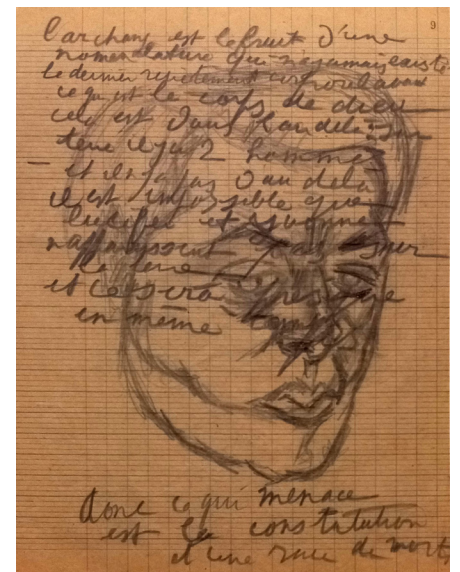 9
l'archange est le fruit d'une
nomenclature qui n'a jamais existé
le dernier
ce qu est le corps de dieu
cela est dans l'au delà sur
terre il y a 2 hommes
et il n'y a pas d au delà
il est impossible que
lucifer et
pas sur
la terre
et ce sera presque
en même temps
donc ce qui menace
est la constatation
d une race de morts